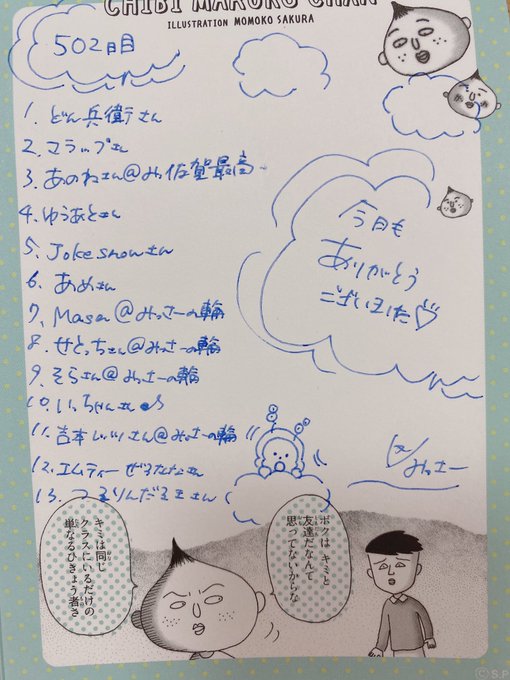 CHIBI MARUKO CHAN
ILLUSTRATION MOMOKO SAKURA
502日目
1. どん兵衛さん
2. マラップさん
3. あのねさん@みっ佐賀最高
4. ゆうあとさん
5. Joke snowさん
6. あめさん
7. Masaさん@みっさーの輪
8. せとっちさん@みっさーの輪
9. そらさん@みっさーの輪
10. いっちゃんさん
11. 吉本さん@みっさーの輪
12. エムティーさん
13. つるりんだるまさん
今日も
ありがとう
ございました♡
by みっさー
ボクはキミと
友達だなんて
思ってないからな
キミは同じ
クラスにいるだけの
単なるひきょう者さ
©S.P